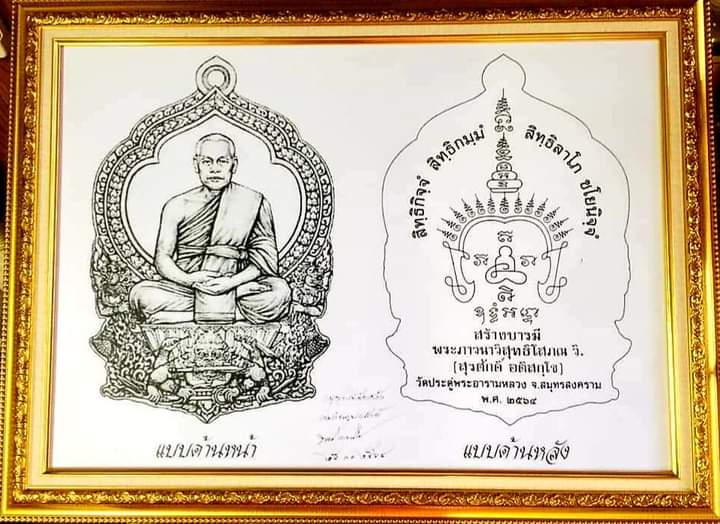 สิทฺธิกิจฺจํ สิทฺธิกมฺมํ สิทฺธิลาโภ ชโยนิจฺจํ
สร้างบารมี
พระภาวนาวิสุทธิโสภณ วิ.
(สุรศักดิ์ อติสกฺโข)
วัดประดู่พระอารามหลวง จ.สมุทรสงคราม
พ.ศ. ๒๕๖๔
แบบด้านหน้า
แบบด้านหลัง